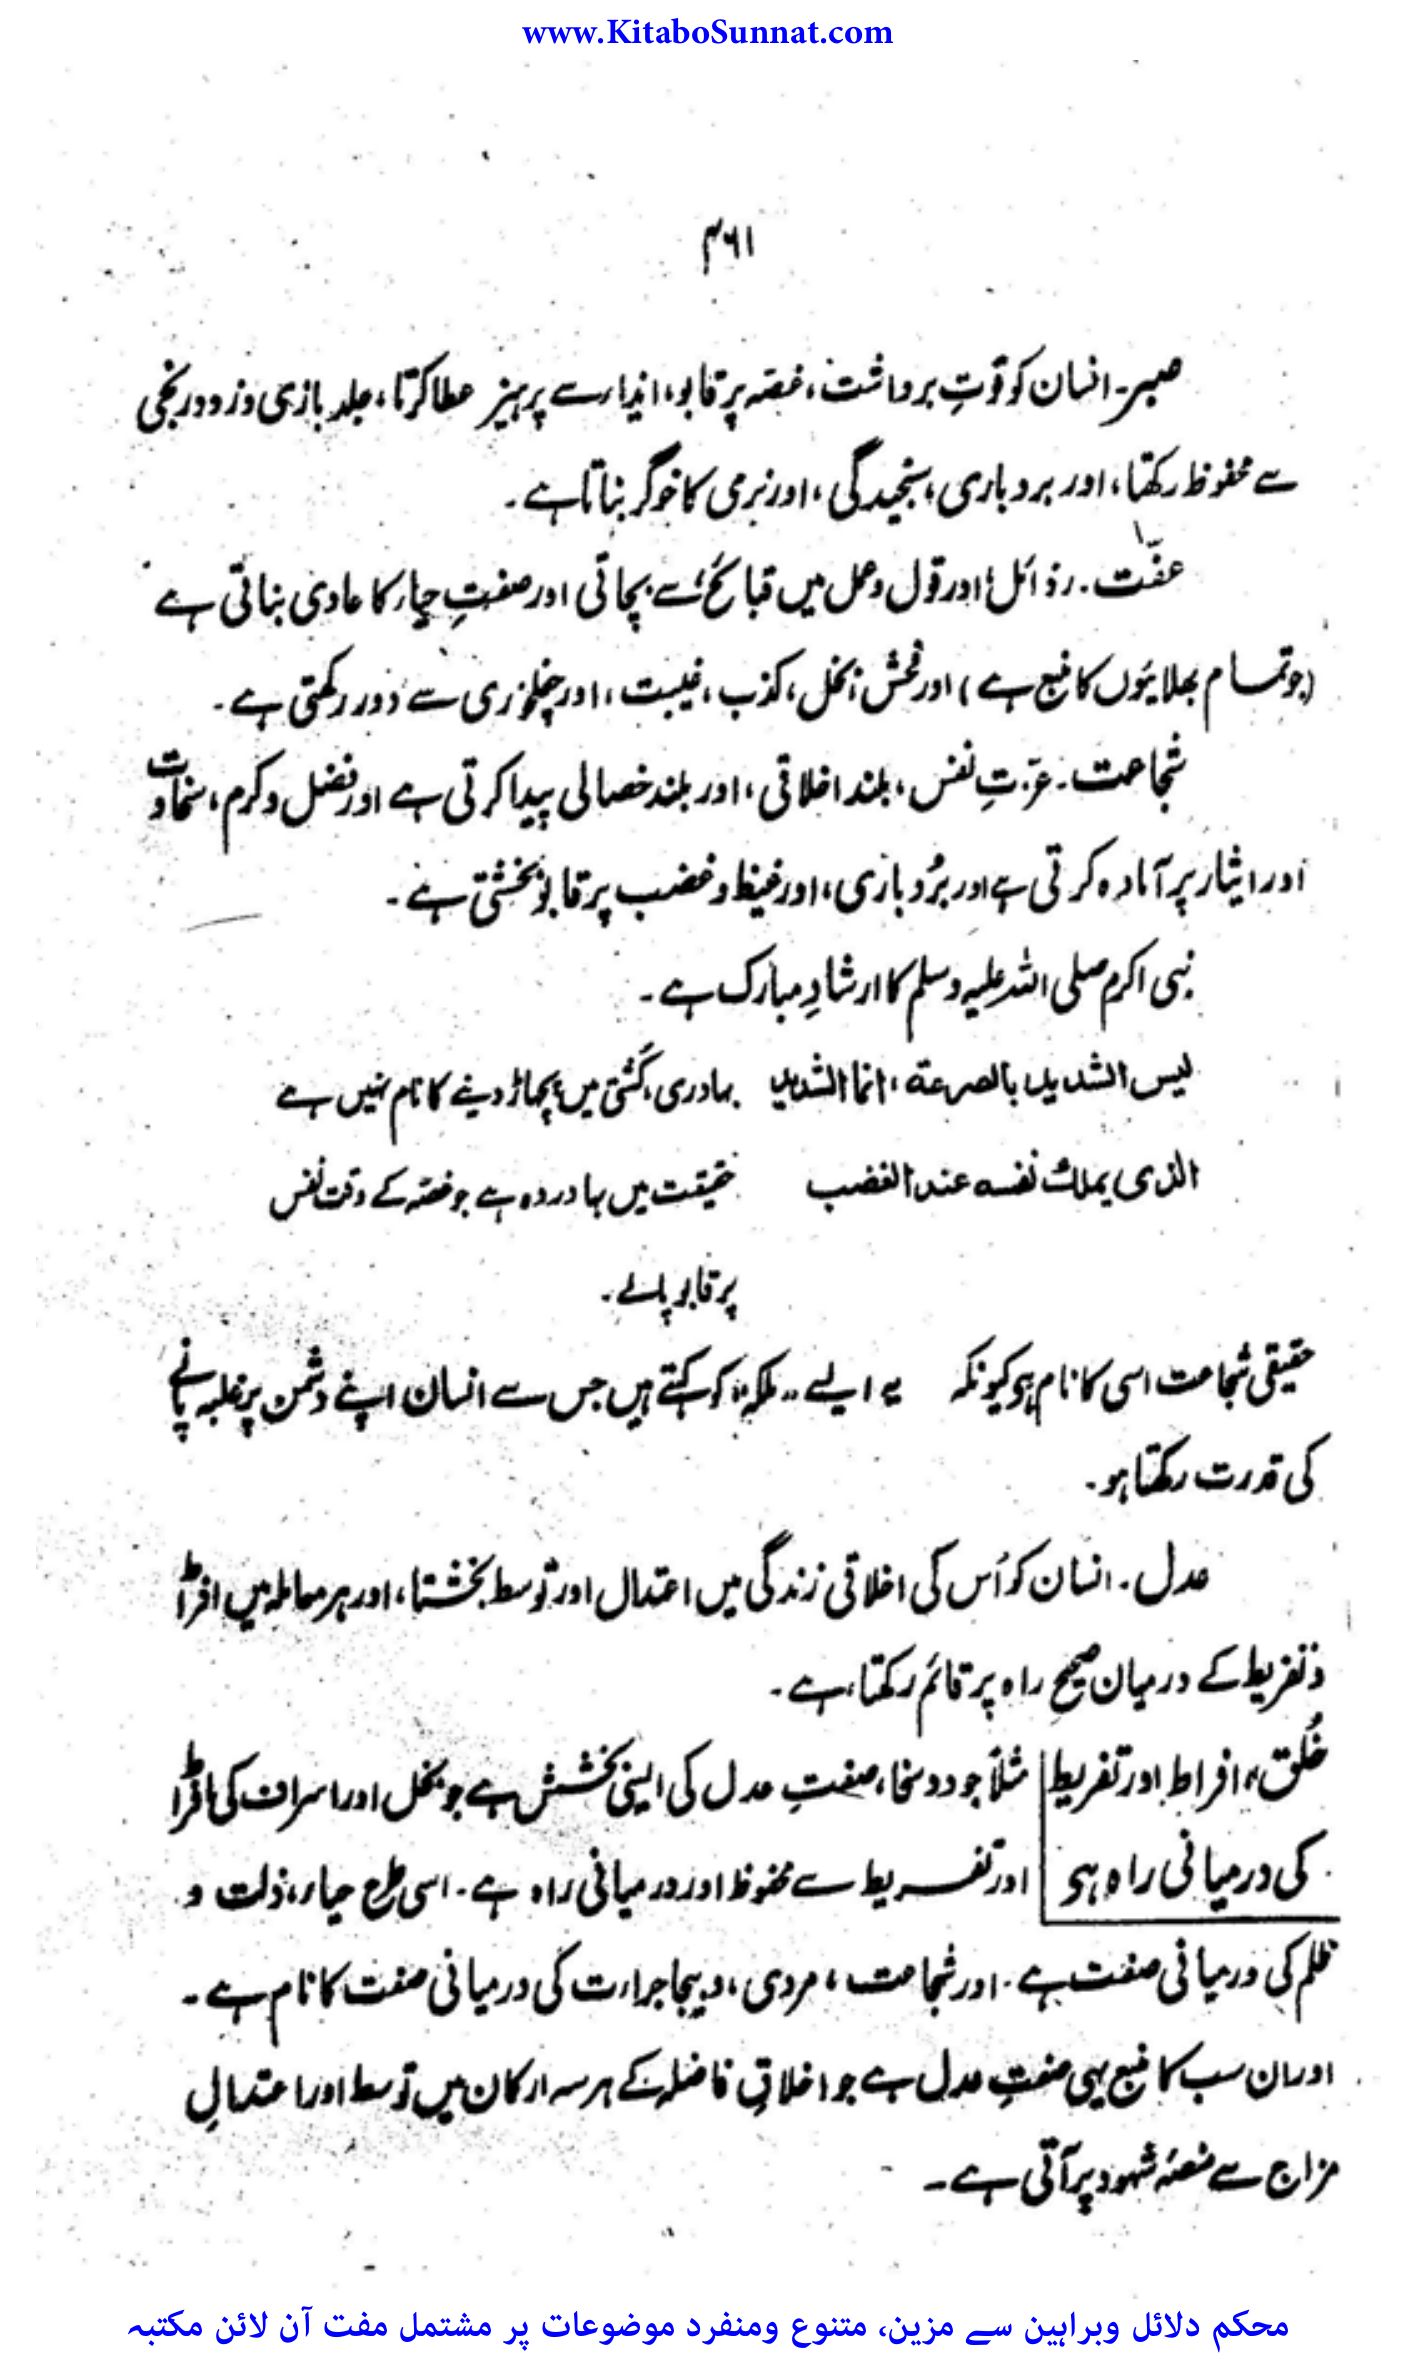 www.KitaboSunnat.com
۴۶۱
صبر۔ انسان کو قوتِ برداشت، غصّہ پر قابو، ایذاء سے پرہیز عطا کرتا، جلد بازی و زود رنجی
سے محفوظ رکھتا، اور بردباری، سنجیدگی، اور نرمی کا خوگر بناتا ہے۔
عفّت۔ رذائل اور قول و عمل میں قبائح سے بچاتی اور صفتِ حیاء کا عادی بناتی ہے
(جو تمام بھلائیوں کا منبع ہے) اور فحش، بخل، کذب، غیبت، اور چغلخوری سے دور رکھتی ہے۔
شجاعت۔ عزّتِ نفس، بلند اخلاقی، اور بلند خصالی پیدا کرتی ہے اور فضل و کرم، سخاوت
اور ایثار پر آمادہ کرتی ہے اور بُردباری، اور غیظ و غضب پر قابو بخشتی ہے۔
نبی اکرم صلی اللہ علیہ وسلم کا ارشادِ مبارک ہے۔
لیس الشدید بالصرعة، انما الشدید بہادری، کُشتی میں پچھاڑ دینے کا نام نہیں ہے
الذی یملک نفسه عند الغضب حقیقت میں بہادر وہ ہے جو غصّہ کے وقت نفس
پر قابو پالے۔
حقیقی شجاعت اسی کا نام ہی کیونکہ یہ ایسے ״ملکہ״ کو کہتے ہیں جس سے انسان اپنے دشمن پر غلبہ پانے
کی قدرت رکھتا ہو۔
عدل۔ انسان کو اُس کی اخلاقی زندگی میں اعتدال اور توسط بخشتا، اور ہر معاملہ میں افراط
و تفریط کے درمیان صحیح راہ پر قائم رکھتا ہے۔
خُلق، افراط اور تفریط
کی درمیانی راہ ہی
مثلاً جود و سخا، صفتِ عدل کی ایسی بخشش ہے جو بخل اور اسراف کی افراط
اور تفریط سے محفوظ اور درمیانی راہ ہے۔ اسی طرح حیاء، ذلت و
ظلم کی درمیانی صفت ہے۔ اور شجاعت، مردی، و بیجا جراءت کی درمیانی صفت کا نام ہے۔
اور ان سب کا منبع یہی صفتِ عدل ہے جو اخلاقِ فاضلہ کے ہر سہ ارکان میں توسط اور اعتدالِ
مزاج سے منصۂ شہود پر آتی ہے۔
محکم دلائل وبراہین سے مزین، متنوع ومنفرد موضوعات پر مشتمل مفت آن لائن مکتبہ